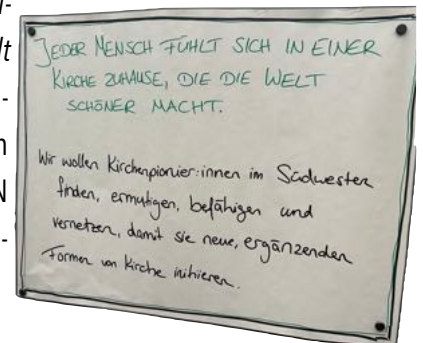 l-
lt
-
n
N
-
JEDER MENSCH FÜHLT SICH IN EINER
KIRCHE ZUHAUSE, DIE DIE WELT
SCHÖNER MACHT.
Wir wollen Kirchenpionier:innen im Südwesten
finden, ermutigen, befähigen und
vernetzen, damit sie neue, ergänzenden
Formen von Kirche initiieren.